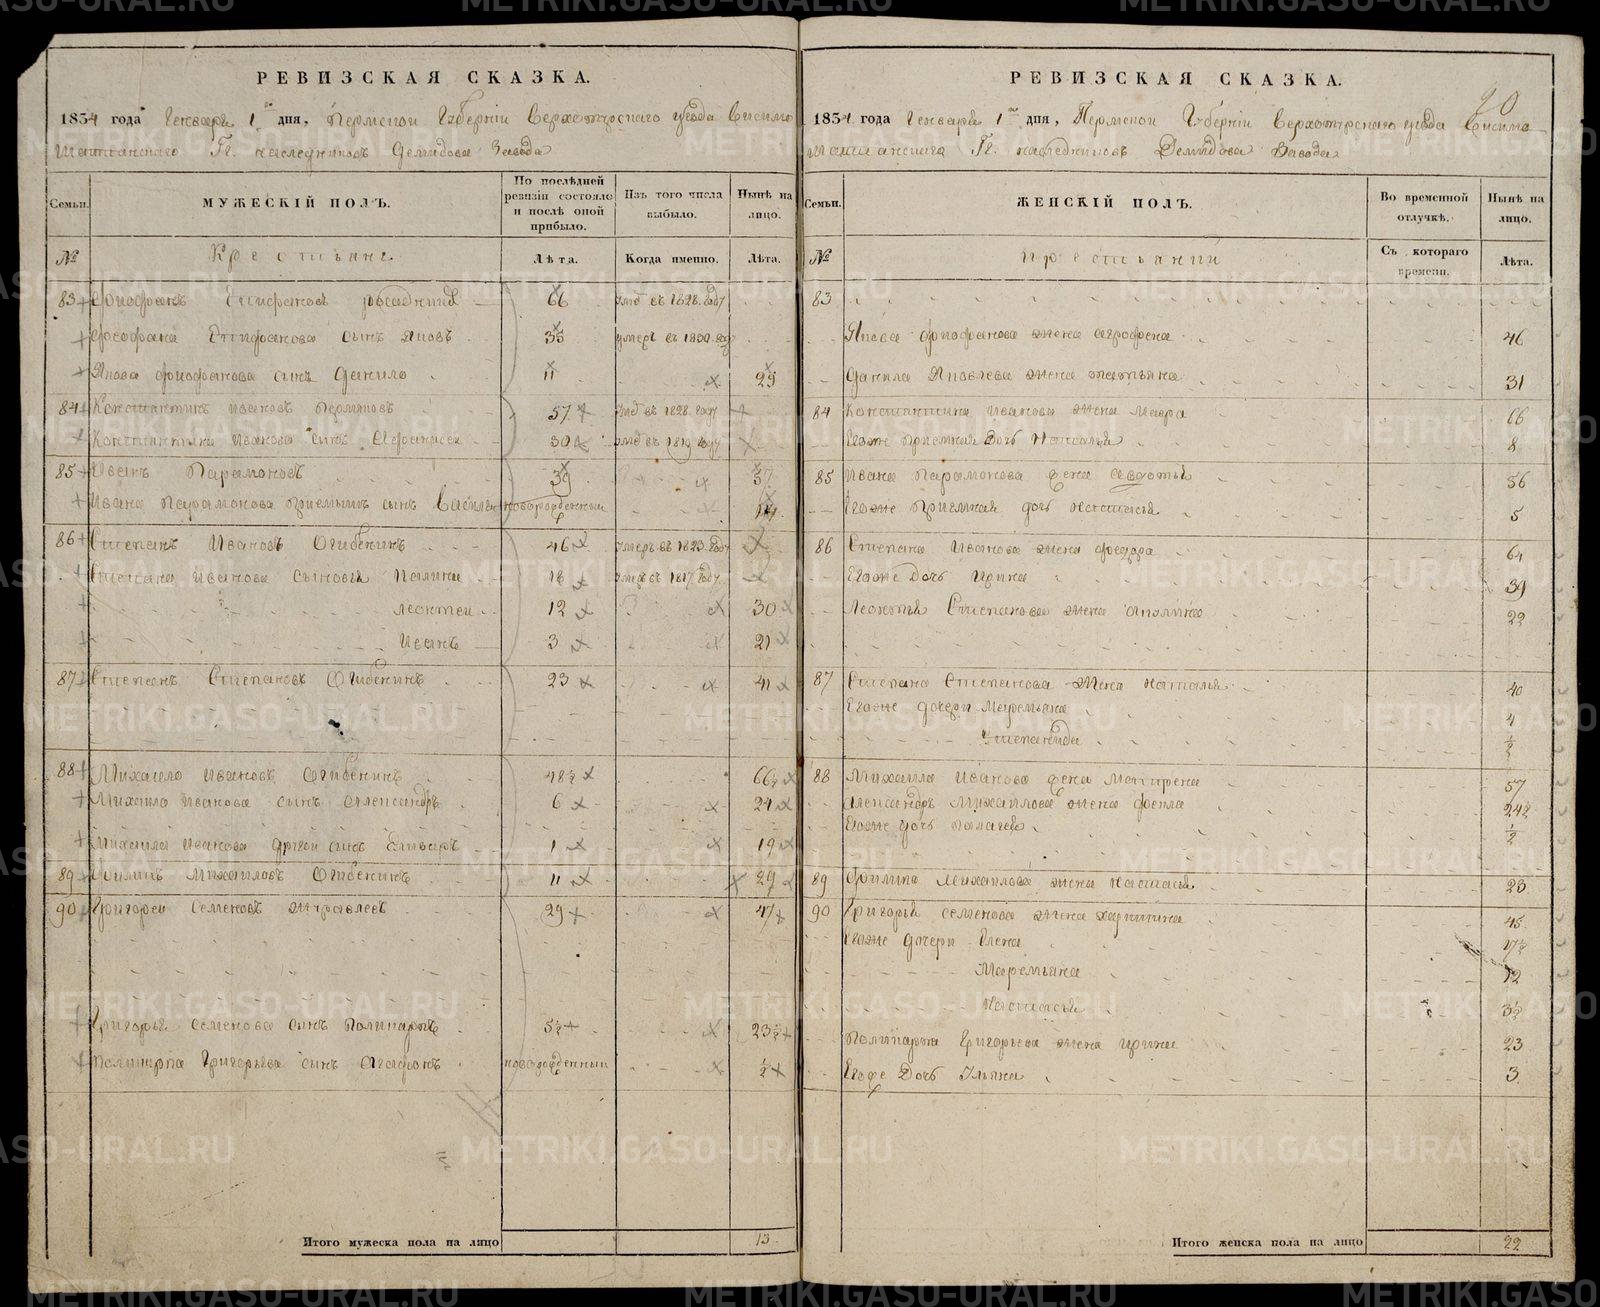 РЕВИЗСКАЯ СКАЗКА.
1834 года Генваря 1го дня, Пермской Губернiи Верхотурскаго уѣзда Висимо
Шайтанскаго Гг. наслѣдниковъ Демидова Завода
Семьи.
МУЖЕСКIЙ ПОЛЪ.
По послѣдней ревизiи состояло и послѣ оной прибыло.
Изъ того числа выбыло.
Нынѣ на лицо.
№
Крестьяне
Лѣта.
Когда именно.
Лѣта.
83 Феофанъ Епифановъ 66 1828 году
Феофана Епифанова сынъ Яковъ 35 умеръ въ 1830 году
Якова Феофанова сынъ Данило 11 29
84 Константинъ Ивановъ Пермяковъ 57 въ 1828 году
Константина Иванова сынъ 30 въ 1819 году
85 Иванъ Парамоновъ 39 57
Ивана Парамонова приемышъ сынъ Василей новорожденный 14
86 Степанъ Ивановъ Огибенинъ 46 умеръ въ 1823 году
Степана Иванова сыновья 18 въ 1817 году
Леонтей 12 30
Иванъ 3 21
87 Степанъ Степановъ Огибенинъ 23 41
88 Михайло Ивановъ Огибенинъ 48½ 66½
Михайла Иванова сынъ Александръ 6 24
Михайла Иванова другой сынъ 1 19
89 Филипъ Михайловъ Огибенинъ 11 29
90 Григорей Семеновъ Журавлевъ 29 47
Григорья Семенова сынъ Поликарпъ 5½ 23½
Поликарпа Григорьева сынъ Агафонъ новорожденный ½
Итого мужеска пола на лицо 13
20
РЕВИЗСКАЯ СКАЗКА.
1834 года Генваря 1го дня, Пермской Губернiи Верхотурскаго уѣзда Висимо
Шайтанскаго Гг. наслѣдниковъ Демидова Завода
Семьи.
ЖЕНСКIЙ ПОЛЪ.
Во временной отлучкѣ.
Нынѣ на лицо.
№
Крестьянки
Съ котораго времени.
Лѣта.
83
Якова Феофанова жена Афрофена 46
Данила Яковлева жена Татьяна 31
84 Константина Иванова жена Мавра 66
Егоже приемная дочь Наталья 8
85 Ивана Парамонова жена Авдотья 56
Егоже приемная дочь Настасья 5
86 Степана Иванова жена Федора 64
Егоже дочь Ирина 39
Леонтья Степанова жена Аполинария 22
87 Степана Степанова жена Наталья 40
Егоже дочери Маремьяна 4
Степанида ½
88 Михайла Иванова жена Матрена 57
Александръ Михайлова жена Фекла 24½
Егоже дочь Палагея ½
89 Филипа Михайлова жена Настасья 23
90 Григорья Семенова жена Харитина 45
Егоже дочери Елена 17½
Маремьяна 12
Настасья 3½
Поликарпа Григорьева жена Ирина 23
Егоже дочь Ульяна 3
Итого женска пола на лицо 22
METRIKI.GASO-URAL.RU